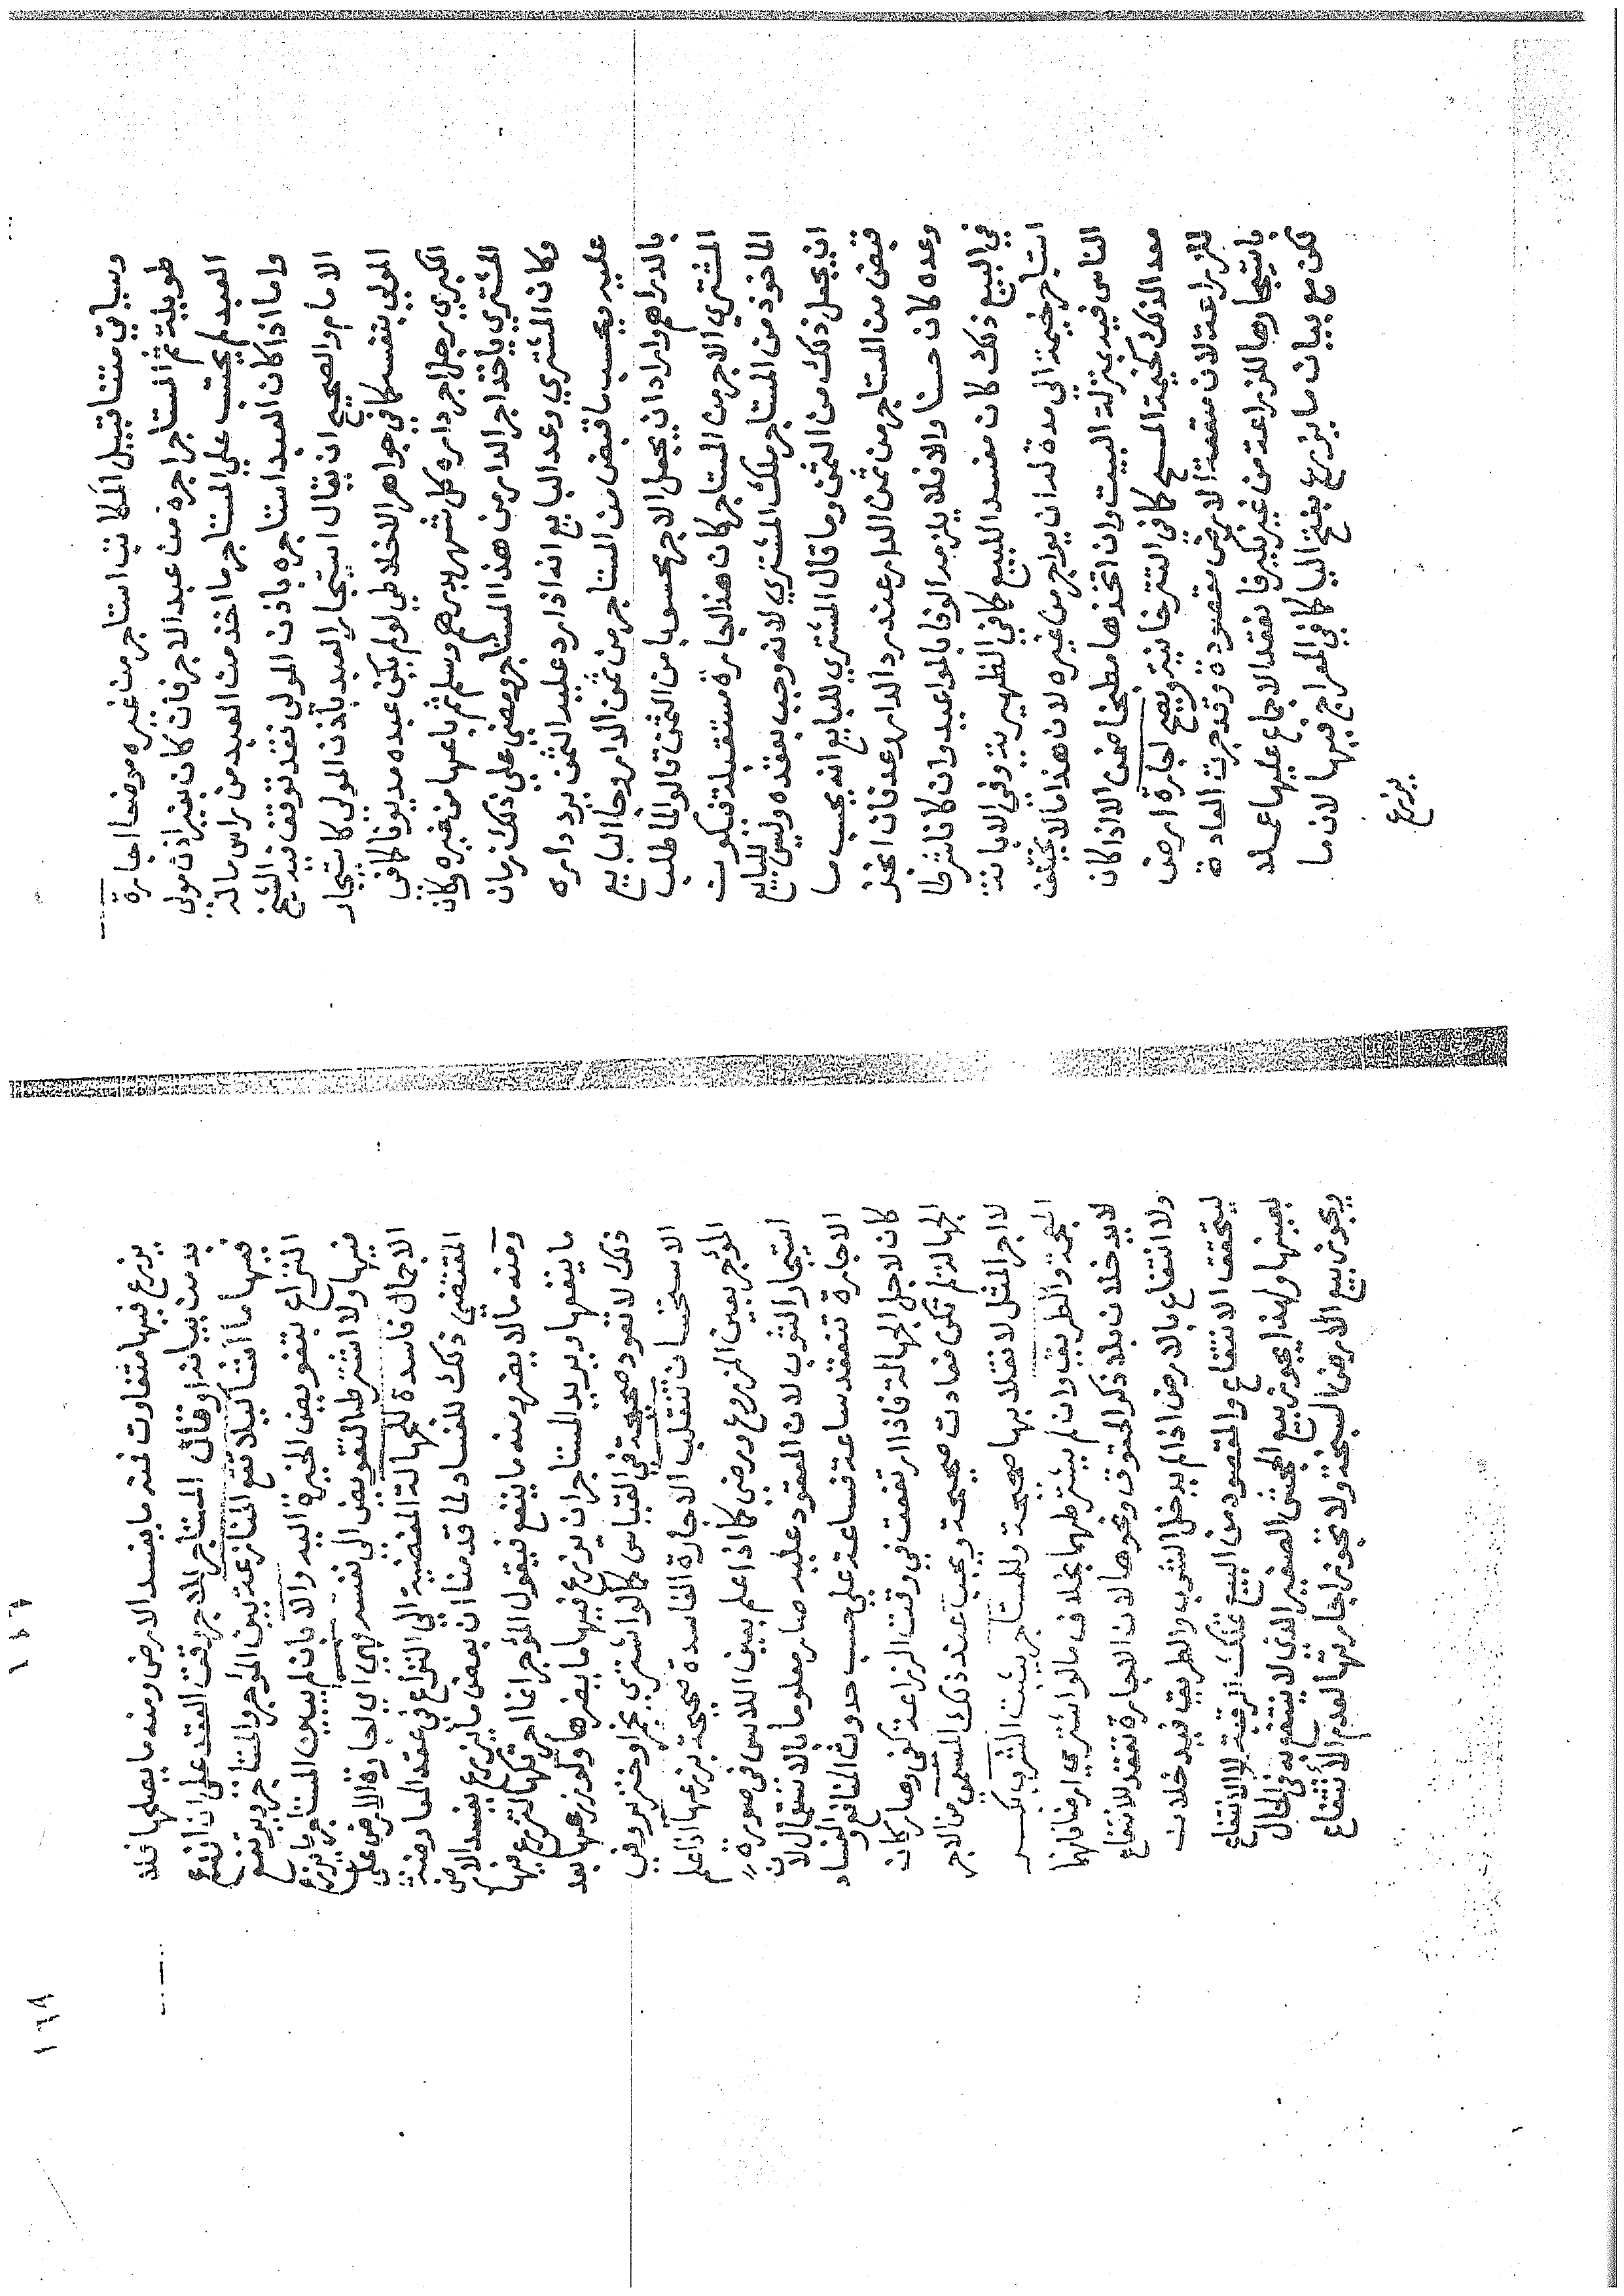 وسياتي متنا قبيل المكاتب استاجر من غيره موضعا اجارة
طويلة ثم المستاجر اجره من عبد الاجر فان كان بغير اذن مولي
العبد لم يحتسب علي المستاجر ما اخذ من العبد من راس ماله
واما اذا كان العبد استاجره باذن المولى فقد توقف فيه الشيخ
الامام والصحيح ان يقال استيجار العبد باذن المولى كاستيجار
المولي بنفسه كما في جواهر الاخلاطي لو لم يكن عبده مديونا كما في
الكبري رجل اجر داره كل شهر بدرهم وسلم ثم باعها من غيره وكان
المشتري ياخذ اجر الدار من هذا المستاجر ومضي علي ذلك زمان
وكان المشتري وعد البايع انه اذا رد عليه الثمن يرد داره
عليه ويحسب ما قبض من المستاجر من ثمن الدار وجا البايع
بالدراهم واراد ان يجعل الاجر محسوبا من الثمن قالوا لما طلب
المشتري الاجر من المستاجر كان هذا اجارة مستقبلة فيكون
الماخوذ من المستاجر ملك المشتري لانه وجب بعقده وليس للبايع
ان يجعل ذلك من الثمن وما قال المشتري للبايع انه يحسب ما
قبض من المستاجر من ثمن الدار عند رد الدار وعد فان انجز
وعده كان حسنا والا فلا يلزمه الوفا بالمواعيد وان كانا شرطا
في البيع ذلك كان مفسدا للبيع كما في الظهيرية وفي الابانة
استاجر خيمة الي مدة له ان يواجر من غيره لان هذا مما لا يختلف
الناس فيه بمنزلة البيت وان اتخذها مطبخا ضمن الا اذا كان
معدا لذلك كخيمة المسح كما في التترخانية ويصح اجارة ارض
للزراعة لان منفعة الارض مقصودة وقد جرت العادة
باستيجارها للزراعة من غير نكير فانعقد الاجماع عليها عملا
لكن مع بيان ما يزرع بفتح اليا كما في المعراج فيها لان ما
يزرع
١٤٧
يزرع فيها متفاوت فمنه ما يفسد الارض ومنه ما يصلحها فلا
بد من بيانه او قال المستاجر للاجر وقت العقد علي ان ازرع
فيها ما اشا كيلا تقع المنازعة بين الموجر والمستاجر ويرتفع
النزاع بتفويض الخيرة اليه والا بان لم يبين المستاجر ما يزرع
فيها ولا اشترط التفويض الى نفسه فهي اي اجارة الارض علي
الاجمال فاسدة للجهالة المفضية الي النزاع في عقد المعاوضة
المقتضي ذلك للفساد لما قدمنا ان بعض ما يزرع يفسد الارض
ومنه ما لا يضر ومنه ما ينفع فيقول المؤجر انما اجرتكها لتزرع فيها
ما ينفعها ويريد المستاجر ان يزرع فيها ما يضرها ولو زرعها بعد
ذلك لا تعود صحيحة في القياس كما لو اشترى بخمر او خنزير وفي
الاستحسان تنقلب الاجارة الفاسدة صحيحة بزرعها اذا علم
المؤجر بعين المزروع ورضي كما اذا علم بعين اللابس في صورة
استيجار الثوب لان المعقود عليه صار معلوما بالاستعمال لان
الاجارة تنعقد ساعة فساعة علي حسب حدوث المنافع والفساد
كان لاجل الجهالة فاذا ارتفعت في وقت الزراعة كفى وصار كان
الجهالة لم تكن فعادت صحيحة ويجب عند ذلك المسمى من الاجر
لا اجر المثل لانقلابها صحيحة وللمستاجر يثبت الشرب بكسر
المعجمة والطريق وان لم يشترطهما بخلاف ما لو اشترى ارضا فانهما
لا يدخلان بلا ذكر الحقوق ونحوها لان الاجارة تعقد للانتفاع
ولا انتفاع بالارض اذا لم يدخل الشرب والطريق فيدخلان
ليتحقق الانتفاع والمقصود من البيع تملك الرقبة لا الانتفاع
بعينها ولهذا يجوز بيع الجحش الصغير الذي لا ينتفع به في الحال
ويجوز بيع الارض السبخة ولا تجوز اجارتها لعدم الانتفاع
١٤٨